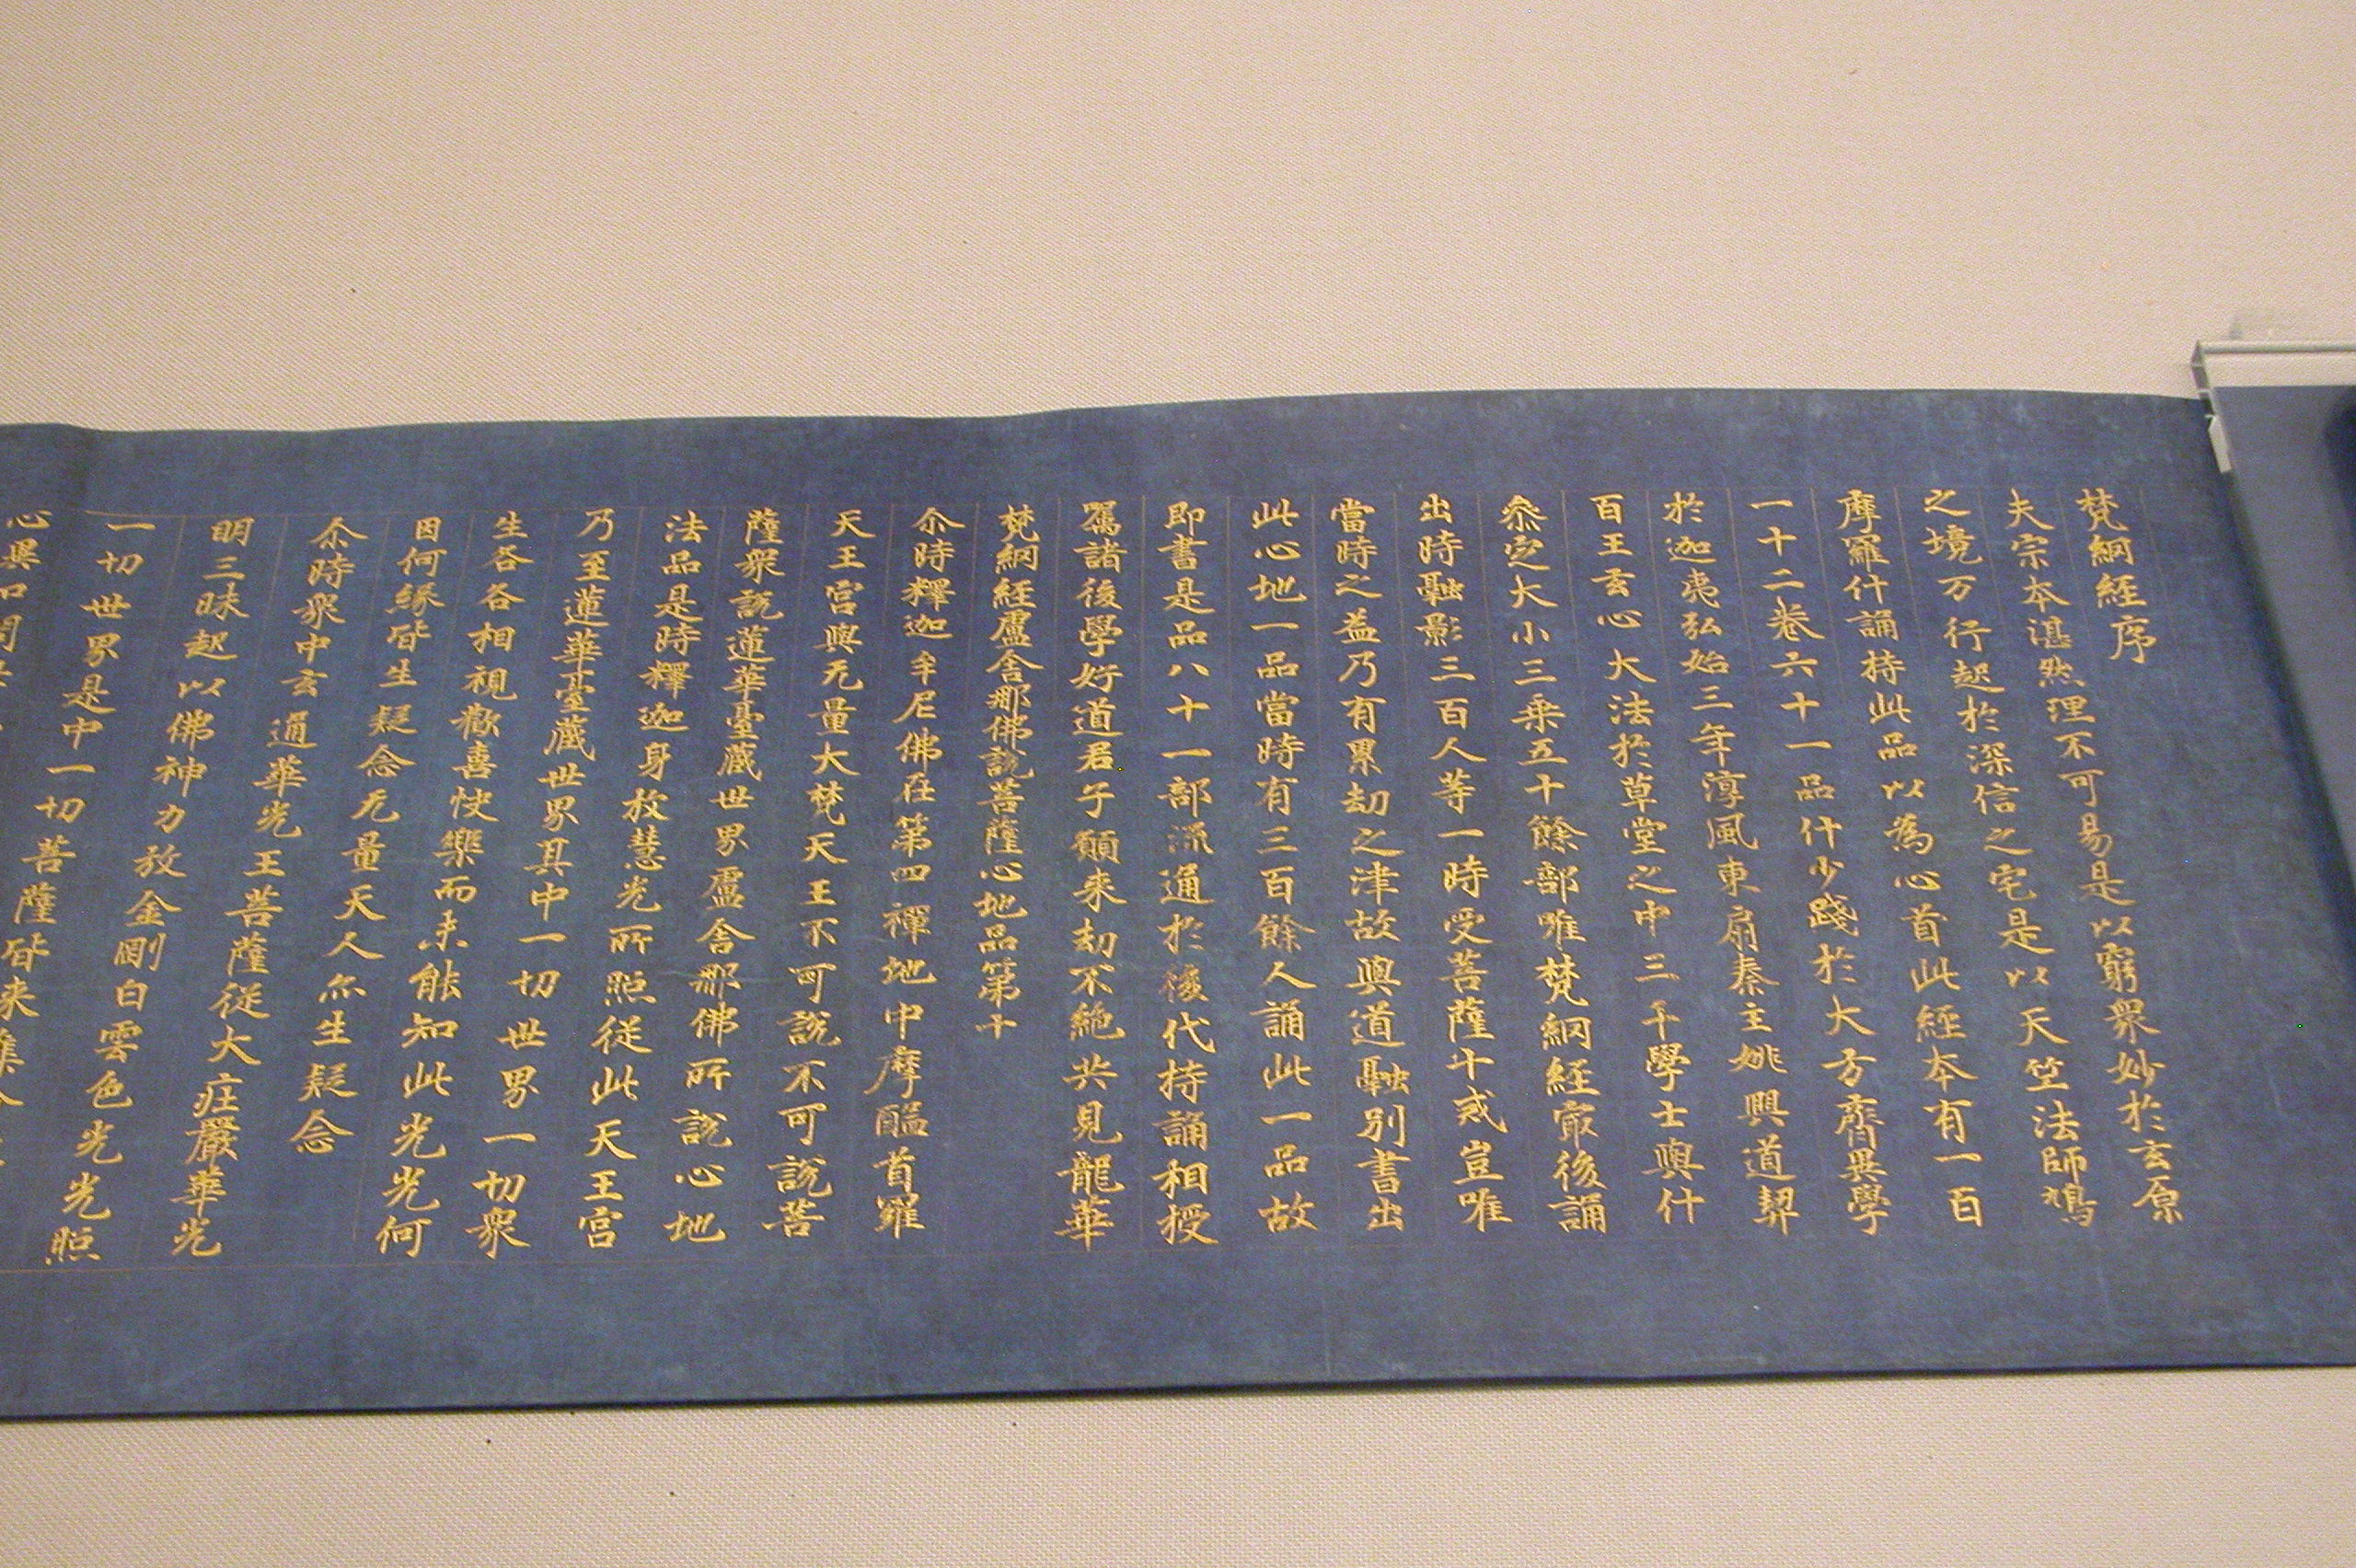 梵網経序
夫宗本湛然理不可易是以窮衆妙於玄原
之境万行起於深信之宅是以天竺法師鳩
摩羅什誦持此品以為心首此經本有一百
一十二巻六十一品什少踐於大方齊異學
於迦夷弘始三年淳風東扇秦主姚興道契
百王玄心大法於草堂之中三千學士與什
叅定大小二乗五十餘部唯梵網経冣後誦
出時融影三百人等一時受菩薩十戒豈唯
當時之益乃有累劫之津故與道融別書出
此心地一品當時有三百餘人誦此一品故
即書是品八十一部流通於後代持誦相授
嘱諸後學好道君子願来劫不絶共見龍華
梵網経盧舎那佛説菩薩心地品第十
尒時釋迦牟尼佛在第四禪地中摩醯首羅
天王宮與无量大梵天王不可説不可説菩
薩衆説蓮華臺蔵世界盧舎那佛所説心地
法品是時釋迦身放慧光所照従此天王宮
乃至蓮華臺蔵世界其中一切世界一切衆
生各各相視歡喜快樂而未能知此光光何
因何縁皆生疑念无量天人尒生疑念
尒時衆中玄通華光王菩薩従大荘嚴華光
明三昧起以佛神力放金剛白雲色光光照
一切世界是中一切菩薩皆来集
心異口問